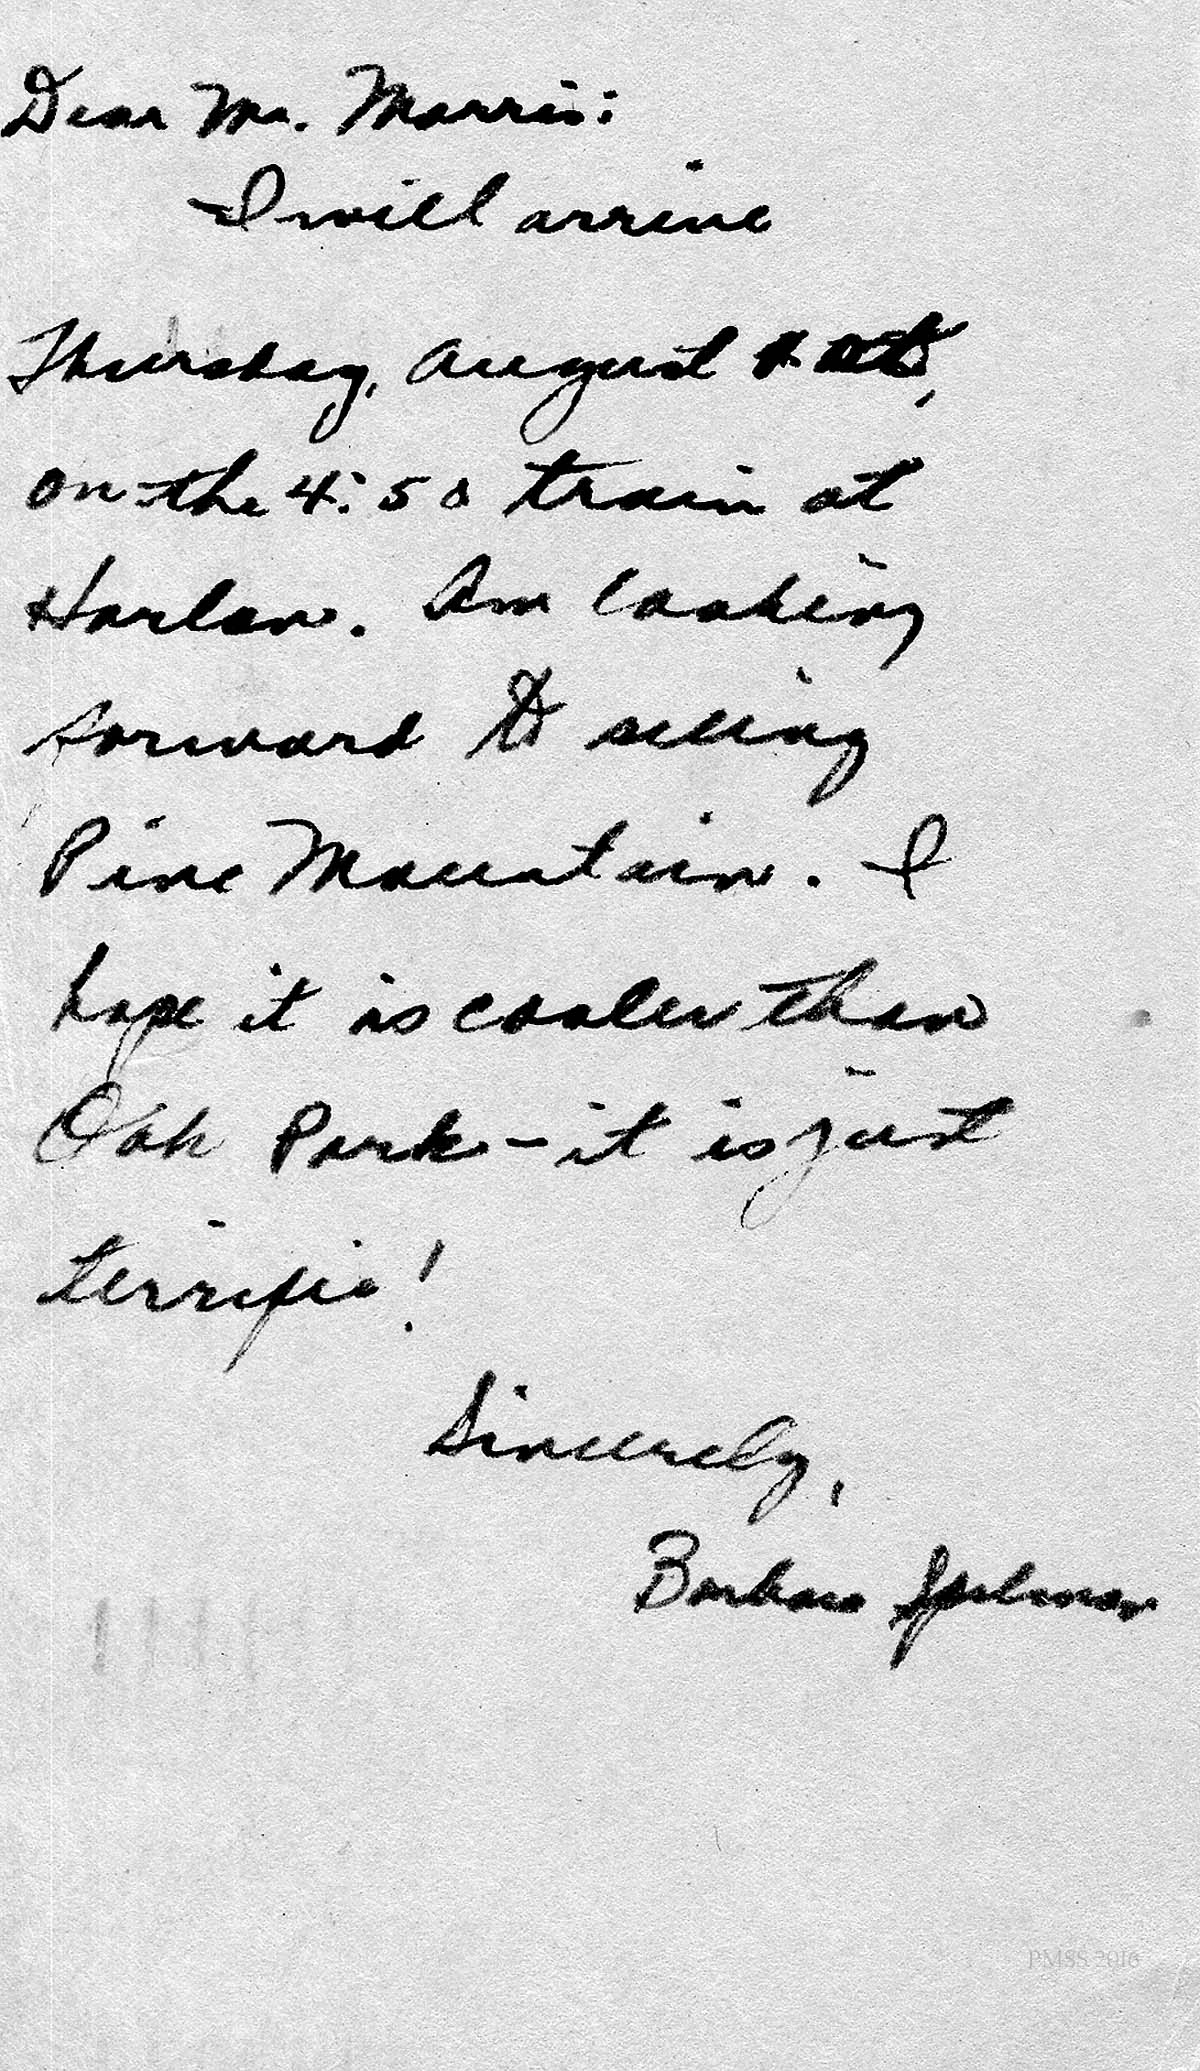 Dear Mr. Morris:
I will arrive
Thursday, August
on the 4:50 train at
Harlan. Am looking
forward to seeing
Pine Mountain. I
hope it is cooler than
Oak Park - it is just
terrific!
Sincerely,
Barbara Spelman
PMSS 2016